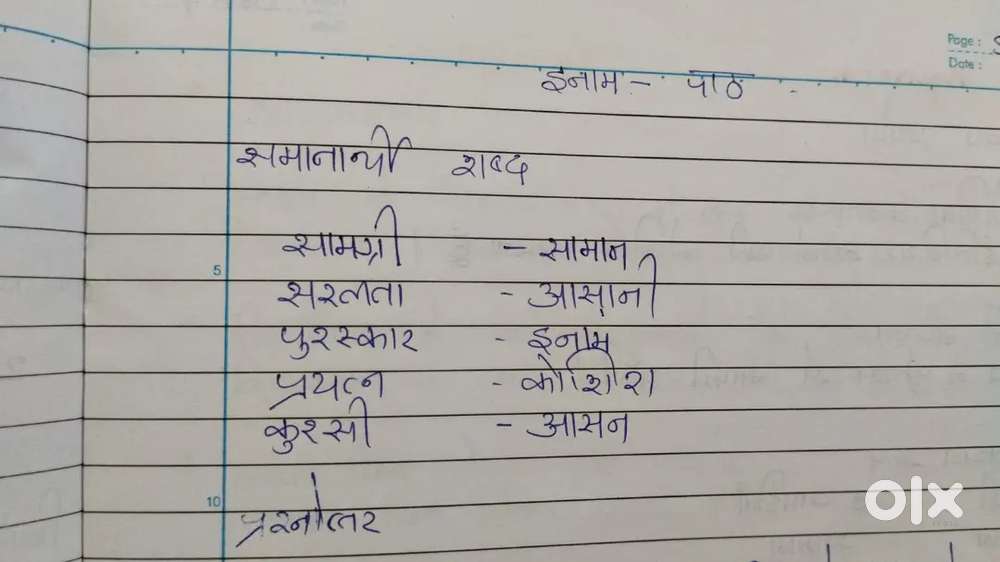 Page : S
Date :
इनाम - पाठ
समानार्थी शब्द
सामग्री - सामान
5
सरलता - आसानी
पुरस्कार - इनाम
प्रयत्न - कोशिश
कुरसी - आसन
10
प्रश्नोत्तर
olx